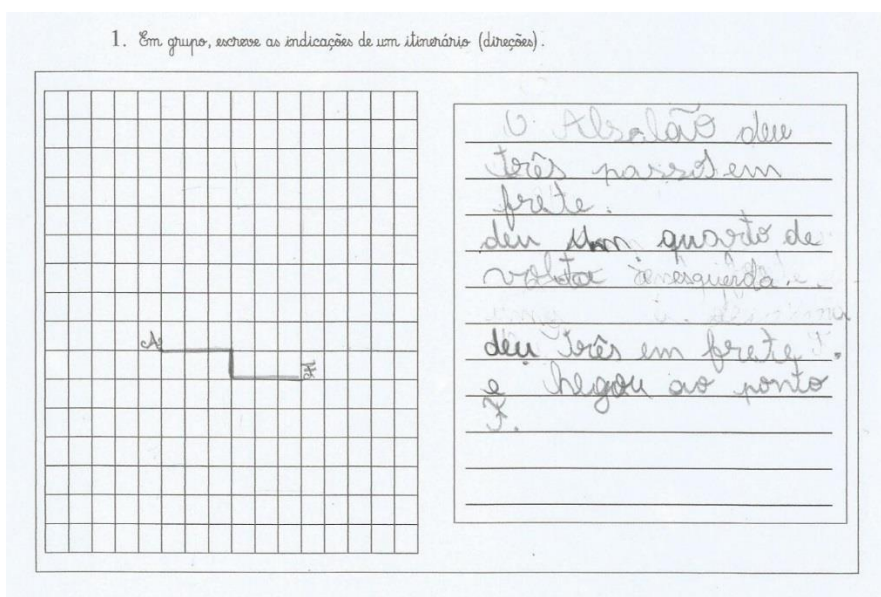 1. Em grupo, escreve as indicações de um itinerário (direções).
A
F
O Absalão deu
três passos em
frete.
deu um quarto de
volta esquerda.
deu três em frete.
e hegou ao ponto
F.